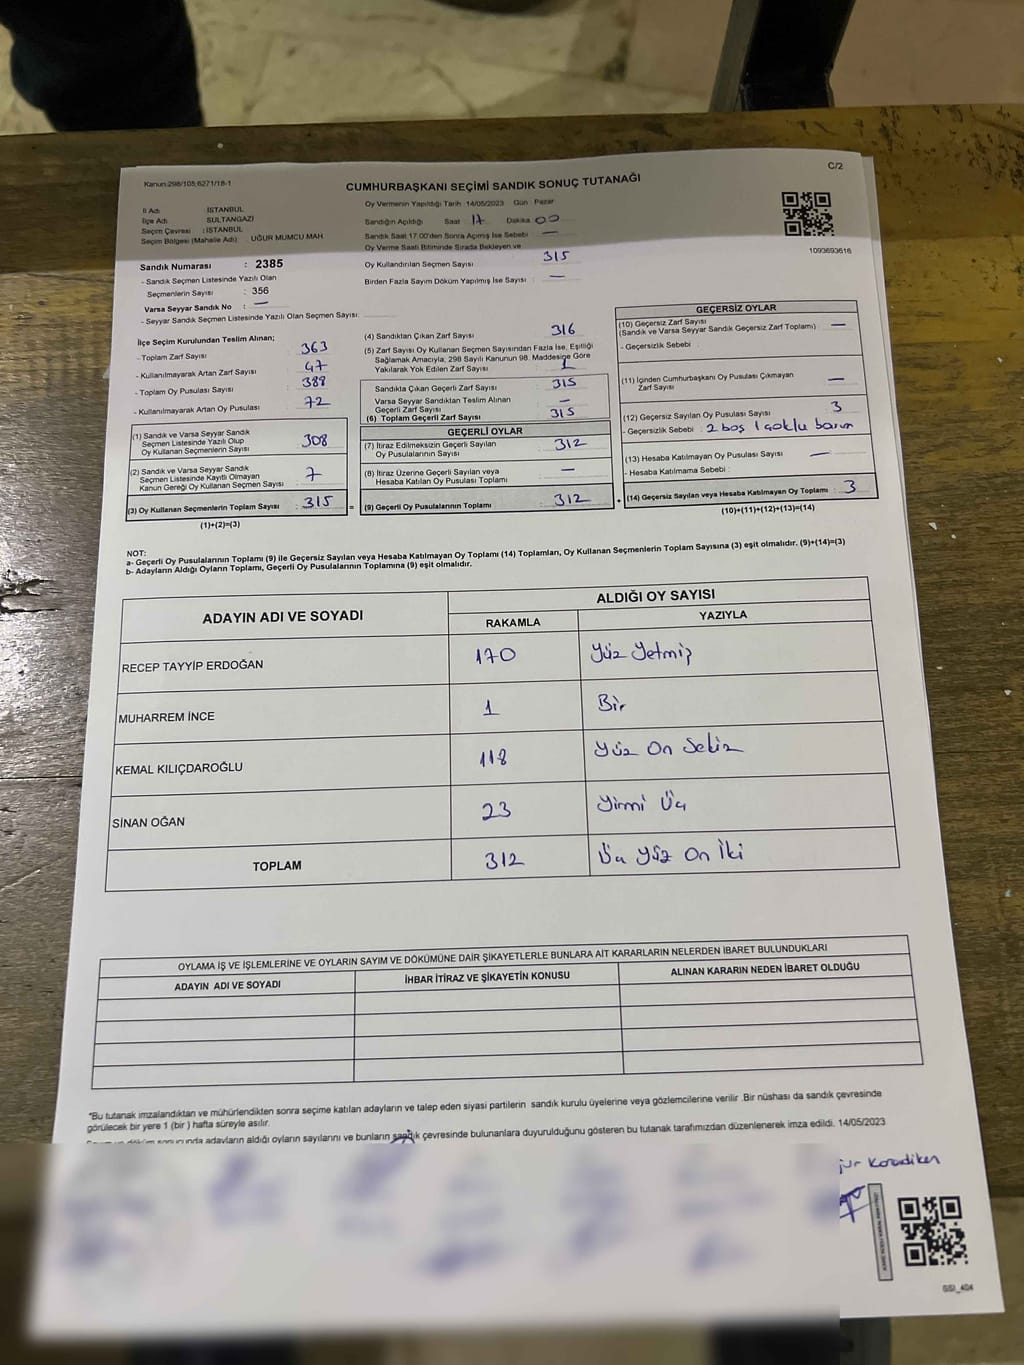 C/2
Kanun:298/105;6271/18-1
CUMHURBAŞKANI SEÇİMİ SANDIK SONUÇ TUTANAĞI
İl Adı : İSTANBUL
İlçe Adı : SULTANGAZİ
Seçim Çevresi : İSTANBUL
Seçim Bölgesi (Mahalle Adı) : UĞUR MUMCU MAH.
Oy Vermenin Yapıldığı Tarih :14/05/2023 Gün : Pazar
Sandığın Açıldığı Saat 17 Dakika 00
Sandık Saat 17:00'den Sonra Açımış İse Sebebi —
Oy Verme Saati Bitiminde Sırada Bekleyen ve
Oy Kullandırılan Seçmen Sayısı 315
Birden Fazla Sayım Döküm Yapılmış İse Sayısı : —
1093693616
Sandık Numarası : 2385
- Sandık Seçmen Listesinde Yazılı Olan
Seçmenlerin Sayısı : 356
Varsa Seyyar Sandık No : —
- Seyyar Sandık Seçmen Listesinde Yazılı Olan Seçmen Sayısı:
İlçe Seçim Kurulundan Teslim Alınan;
- Toplam Zarf Sayısı : 363
- Kullanılmayarak Artan Zarf Sayısı : 47
- Toplam Oy Pusulası Sayısı : 388
- Kullanılmayarak Artan Oy Pusulası : 72
(1) Sandık ve Varsa Seyyar Sandık
Seçmen Listesinde Yazılı Olup
Oy Kullanan Seçmenlerin Sayısı : 308
(2) Sandık ve Varsa Seyyar Sandık
Seçmen Listesinde Kayıtlı Olmayan
Kanun Gereği Oy Kullanan Seçmen Sayısı : 7
(3) Oy Kullanan Seçmenlerin Toplam Sayısı : 315
(1)+(2)=(3)
(4) Sandıktan Çıkan Zarf Sayısı : 316
(5) Zarf Sayısı Oy Kullanan Seçmen Sayısından Fazla İse, Eşitliği
Sağlamak Amacıyla; 298 Sayılı Kanunun 98. Maddesine Göre
Yakılarak Yok Edilen Zarf Sayısı : 1
Sandıkta Çıkan Geçerli Zarf Sayısı : 315
Varsa Seyyar Sandıktan Teslim Alınan
Geçerli Zarf Sayısı : —
(6) Toplam Geçerli Zarf Sayısı : 315
GEÇERLİ OYLAR
(7) İtiraz Edilmeksizin Geçerli Sayılan
Oy Pusulalarının Sayısı : 312
(8) İtiraz Üzerine Geçerli Sayılan veya
Hesaba Katılan Oy Pusulası Toplamı : —
= (9) Geçerli Oy Pusulalarının Toplamı : 312 +
GEÇERSİZ OYLAR
(10) Geçersiz Zarf Sayısı
(Sandık ve Varsa Seyyar Sandık Geçersiz Zarf Toplamı) : —
- Geçersizlik Sebebi :
(11) İçinden Cumhurbaşkanı Oy Pusulası Çıkmayan
Zarf Sayısı : —
(12) Geçersiz Sayılan Oy Pusulası Sayısı : 3
- Geçersizlik Sebebi : 2 boş 1
(13) Hesaba Katılmayan Oy Pusulası Sayısı : —
- Hesaba Katılmama Sebebi :
(14) Geçersiz Sayılan veya Hesaba Katılmayan Oy Toplamı : 3
(10)+(11)+(12)+(13)=(14)
NOT:
a- Geçerli Oy Pusulalarının Toplamı (9) ile Geçersiz Sayılan veya Hesaba Katılmayan Oy Toplamı (14) Toplamları, Oy Kullanan Seçmenlerin Toplam Sayısına (3) eşit olmalıdır. (9)+(14)=(3)
b- Adayların Aldığı Oyların Toplamı, Geçerli Oy Pusulalarının Toplamına (9) eşit olmalıdır.
ADAYIN ADI VE SOYADI ALDIĞI OY SAYISI
RAKAMLA YAZIYLA
RECEP TAYYİP ERDOĞAN 170 Yüz Yetmiş
MUHARREM İNCE 1 Bir
KEMAL KILIÇDAROĞLU 118 Yüz On Sekiz
SİNAN OĞAN 23 Yirmi Üç
TOPLAM 312 Üç Yüz On İki
OYLAMA İŞ VE İŞLEMLERİNE VE OYLARIN SAYIM VE DÖKÜMÜNE DAİR ŞİKAYETLERLE BUNLARA AİT KARARLARIN NELERDEN İBARET BULUNDUKLARI
ADAYIN ADI VE SOYADI İHBAR İTİRAZ VE ŞİKAYETİN KONUSU ALINAN KARARIN NEDEN İBARET OLDUĞU
*Bu tutanak imzalandıktan ve mühürlendikten sonra seçime katılan adayların ve talep eden siyasi partilerin sandık kurulu üyelerine veya gözlemcilerine verilir .Bir nüshası da sandık çevresinde
görülecek bir yere 1 (bir ) hafta süreyle asılır.
sonucunda adayların aldığı oyların sayılarını ve bunların sandık çevresinde bulunanlara duyurulduğunu gösteren bu tutanak tarafımızdan düzenlenerek imza edildi. 14/05/2023
GSI_404